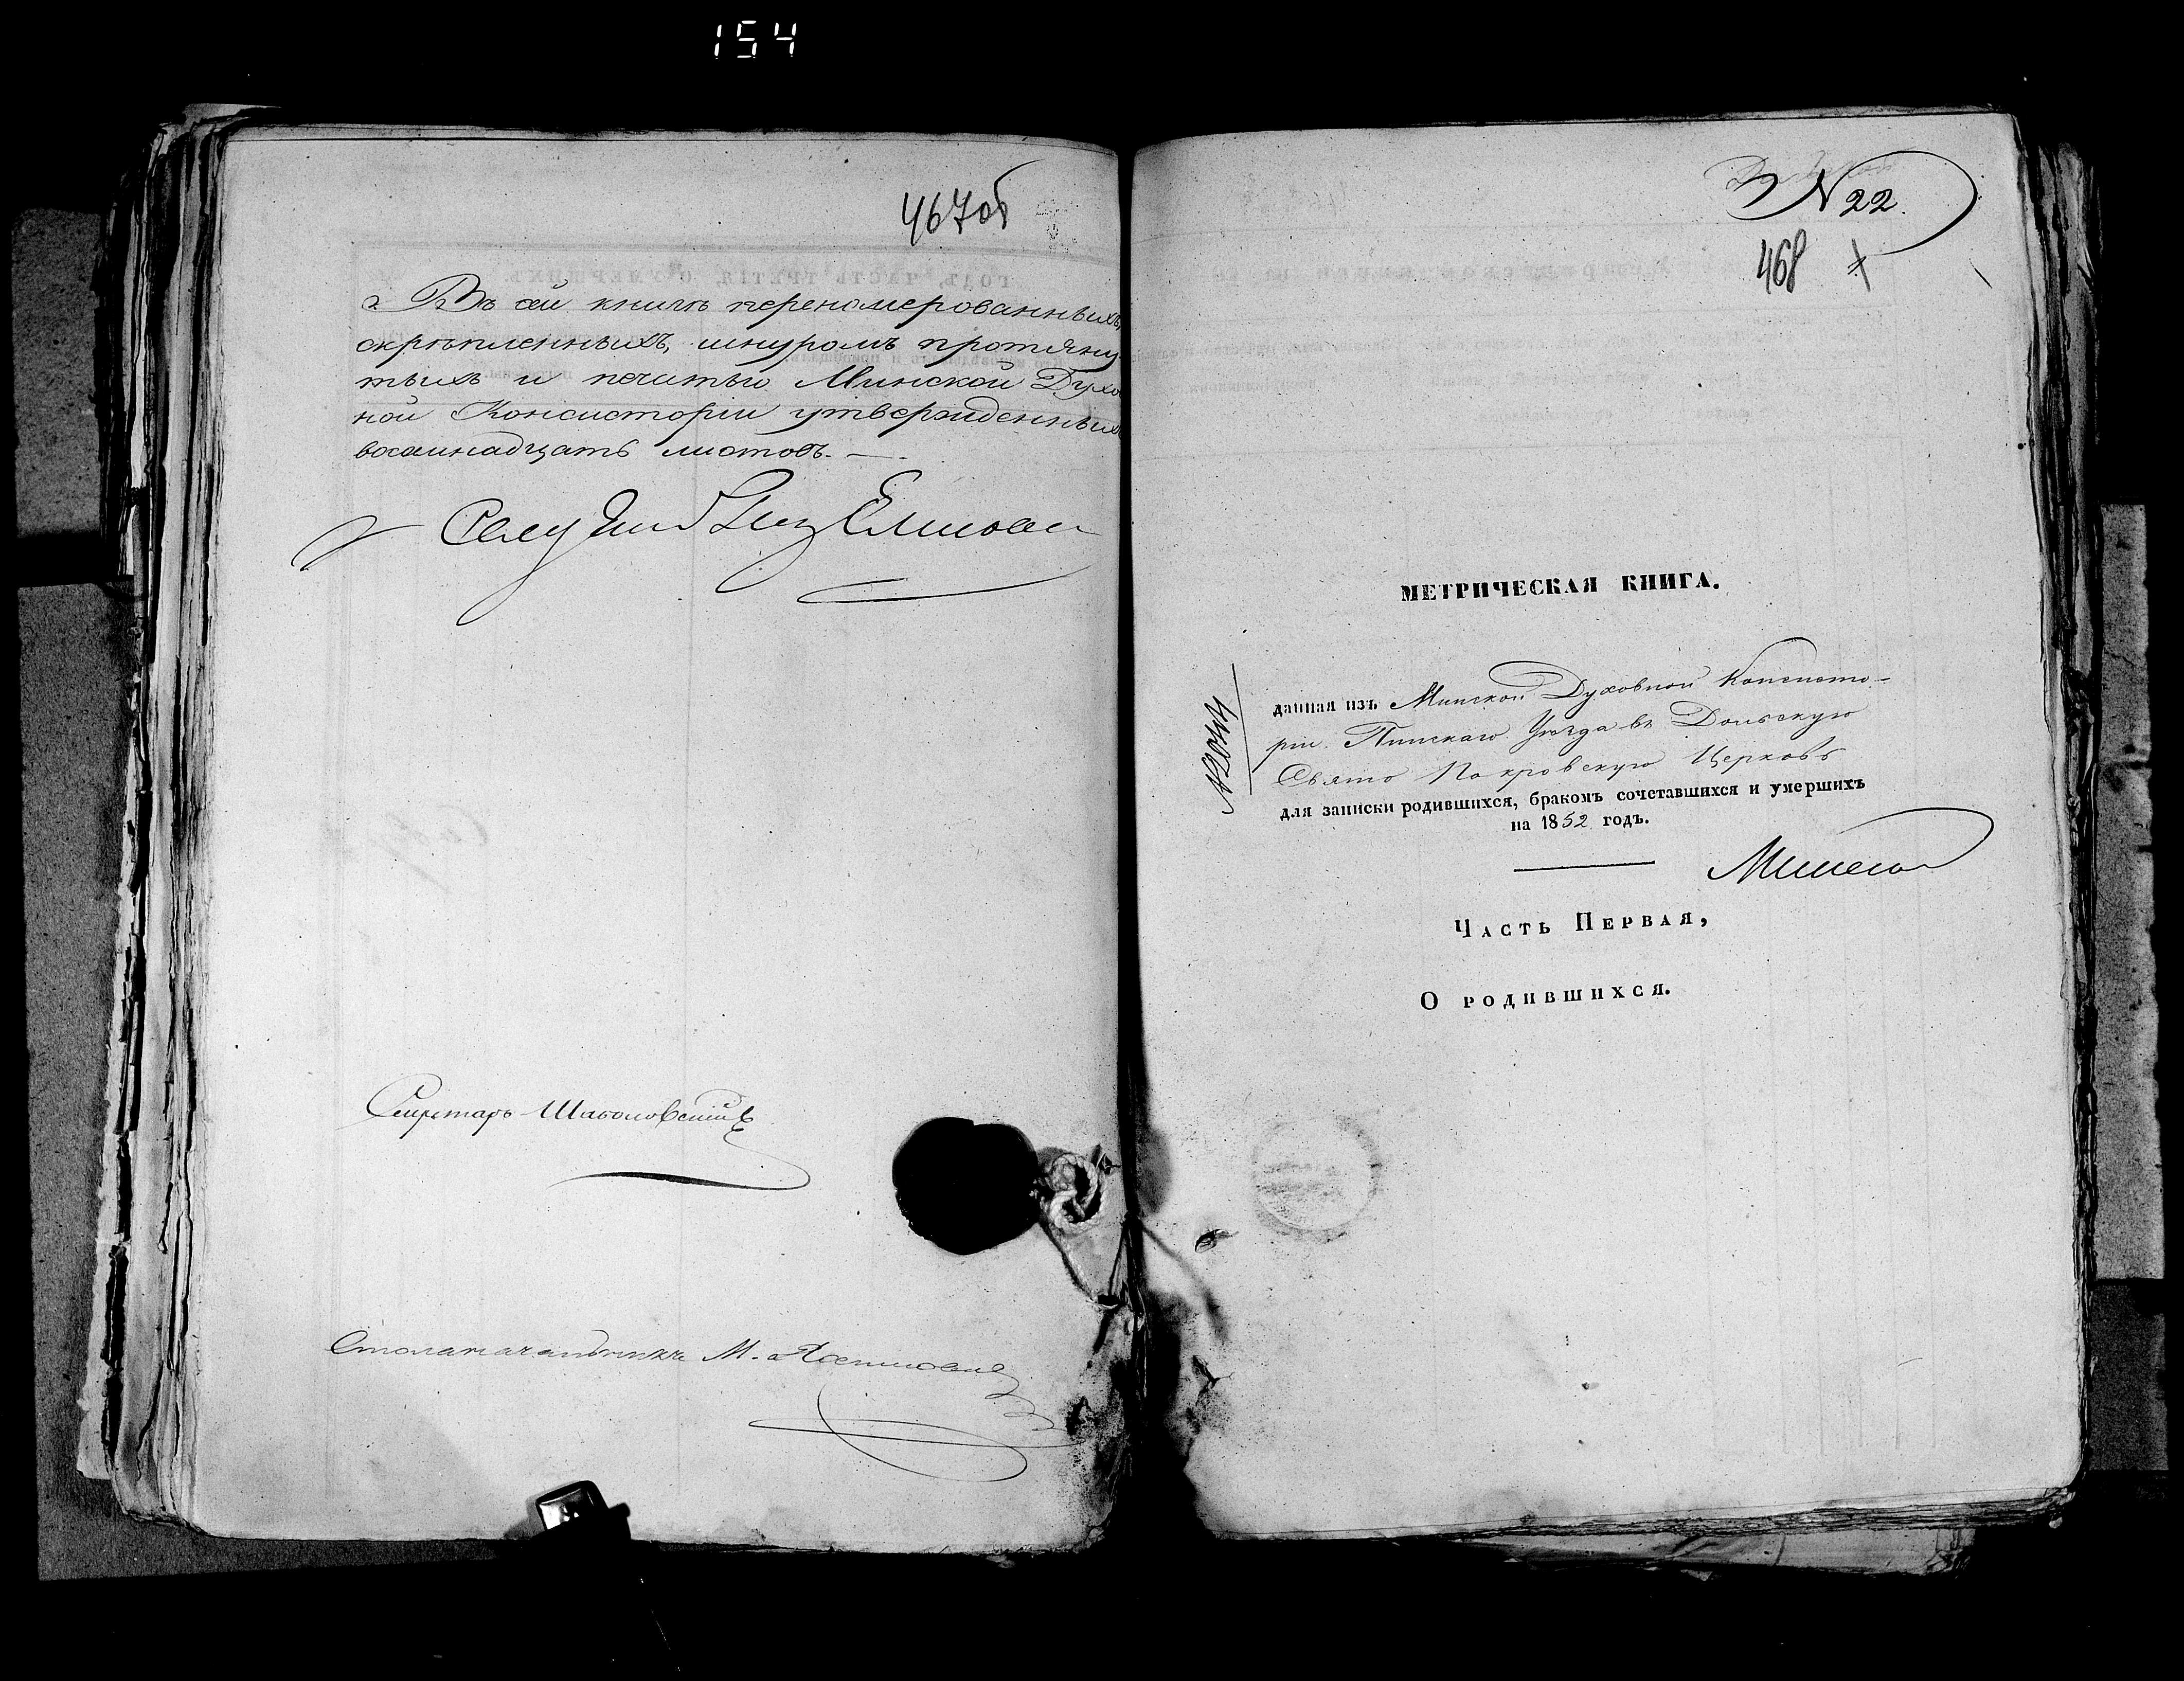 154
467об
Въ сей книгѣ перенумерованныхъ,
скрѣпленныхъ, шнуромъ протяну-
тыхъ и печатью Минской Духов
ной Консисторіи утвержденныхъ
восемнадцать листовъ. —
Секретарь
Столоначальникъ М.
N 22.
468
МЕТРИЧЕСКАЯ КНИГА.
данная изъ Минской Духовной Консисто-
ріи Пинскаго Уѣзда въ Дольскую
Свято Покровскую Церковь
для записки родившихся, бракомъ сочетавшихся и умершихъ
на 1852 годъ.
Часть Первая,
О родившихся.